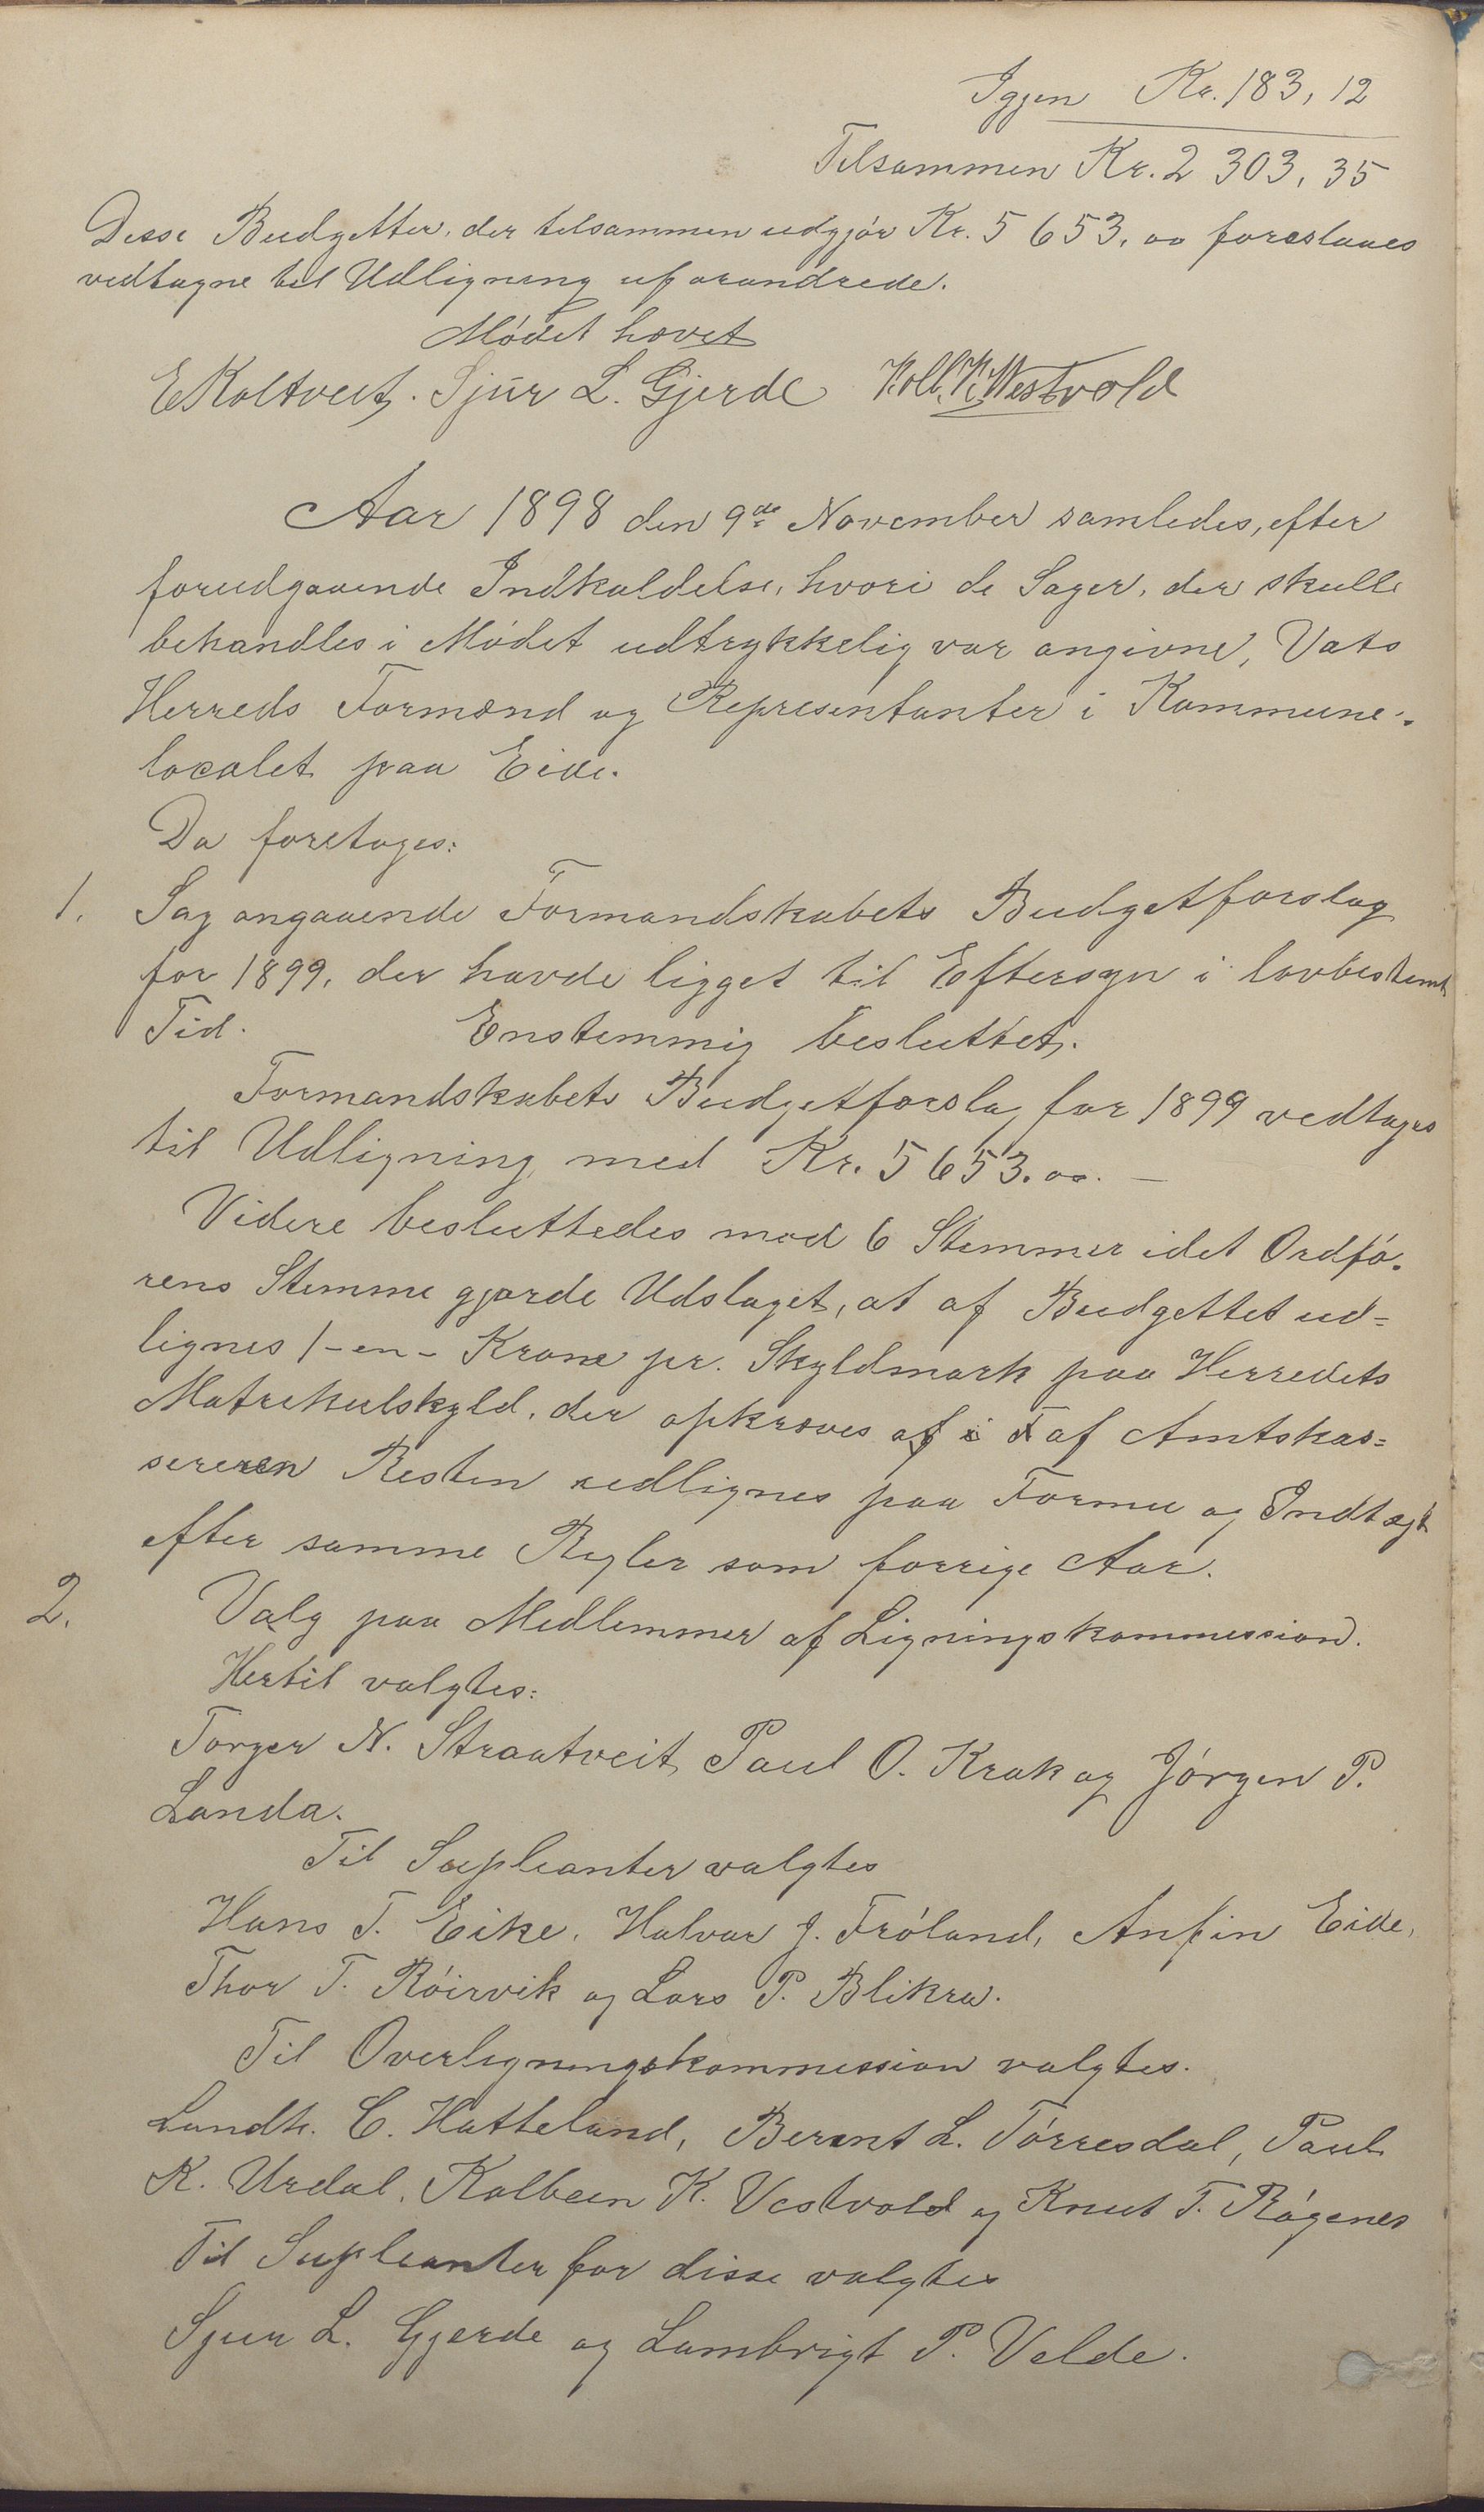 Igjen Kr. 183,12
Tilsammen Kr. 2 303,35
Disse Budgetter, der tilsammen udgjør Kr. 5 653,00 foreslaaes
vedtagne til Udligning uforandrede.
Mødet hævet
E Kaltveit. Sjur L. Gjerde Kolb. K. Westvold
Aar 1898 den 9de November samledes, efter
forudgaaende Indkaldelse, hvori de Sager, der skulle
behandles i Mødet udtrykkelig var angivne, Vats
Herreds Formænd og Representanter i Kommune-
localet paa Eide.
Da foretoges:
1. Sag angaaende Formandskabets Budgetforslag
for 1899, der havde ligget til Eftersyn i lovbestemt
Tid. Enstemmig besluttet.
Formandskabets Budgetforslag for 1899 vedtages
til Udligning med Kr. 5 653.00. —
Videre besluttedes mod 6 Stemmer idet Ordfø-
rens Stemme gjorde Udslaget, at af Budgettet ud=
lignes 1 -en- Krone pr. Skyldmark paa Herredets
Matrikulskyld, der opkræves af i af Amtskas=
sereren Resten udlignes paa Formue og Indtægt
efter samme Regler som forrige Aar.
2. Valg paa Medlemmer af Ligningskommission.
Hertil valgtes:
Torger N. Straatveit, Paul O. Krak og Jørgen P.
Landa.
Til Supleanter valgtes
Hans T. Eike, Halvar J. Frøland, Anfin Eide,
Thor T. Røirvik og Lars P. Blikra.
Til Overligningskommission valgtes.
Landh. C. Hatteland, Berent L. Tørresdal, Paul
K. Urdal, Kolbeen K. Vestvold og Knut T. Røgenes
Til Supleanter for disse valgtes
Sjur L. Gjerde og Lambrigt P. Velde.